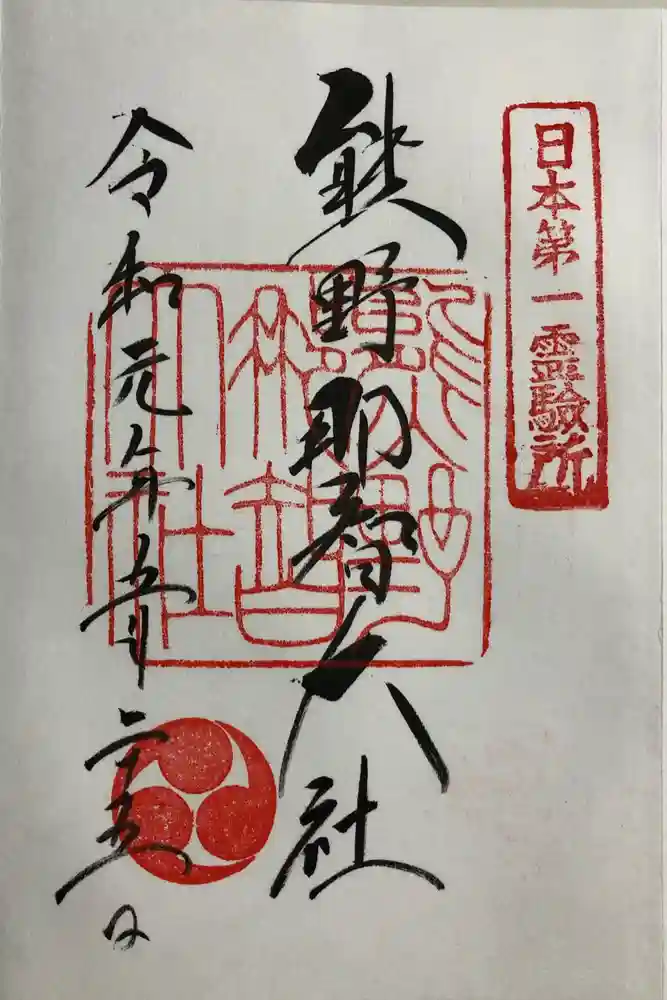 日本第一霊験所
熊野那智大社
令和元年五月二十五日
熊野
那智
大社